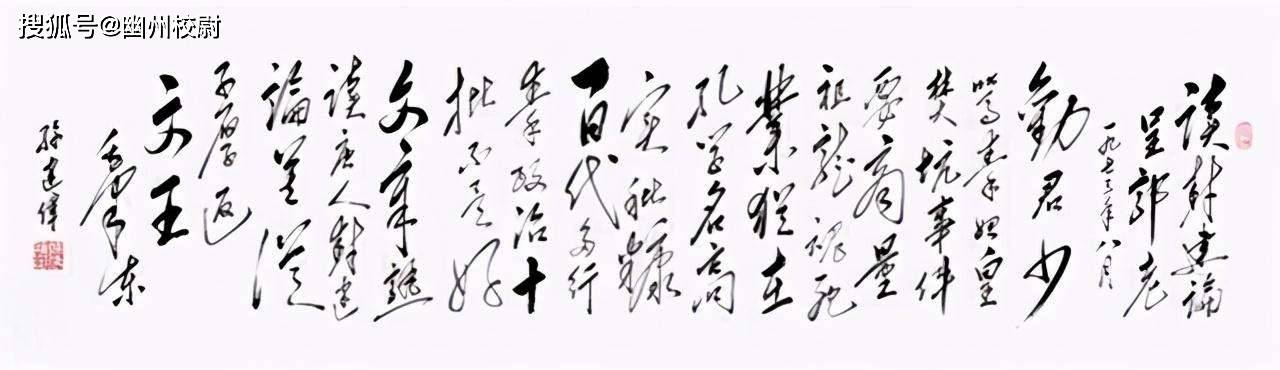 搜狐号@幽州校尉
读封建論
呈郭老
一九七三年八月
勸君少
骂秦始皇
焚坑事件
要商量
祖龍魂死
業猶在
孔学名高
实秕糠
百代多行
秦政治十
批不是好
文章熟
读唐人封建
論莫從
子厚返
文王
毛澤东
孫建偉